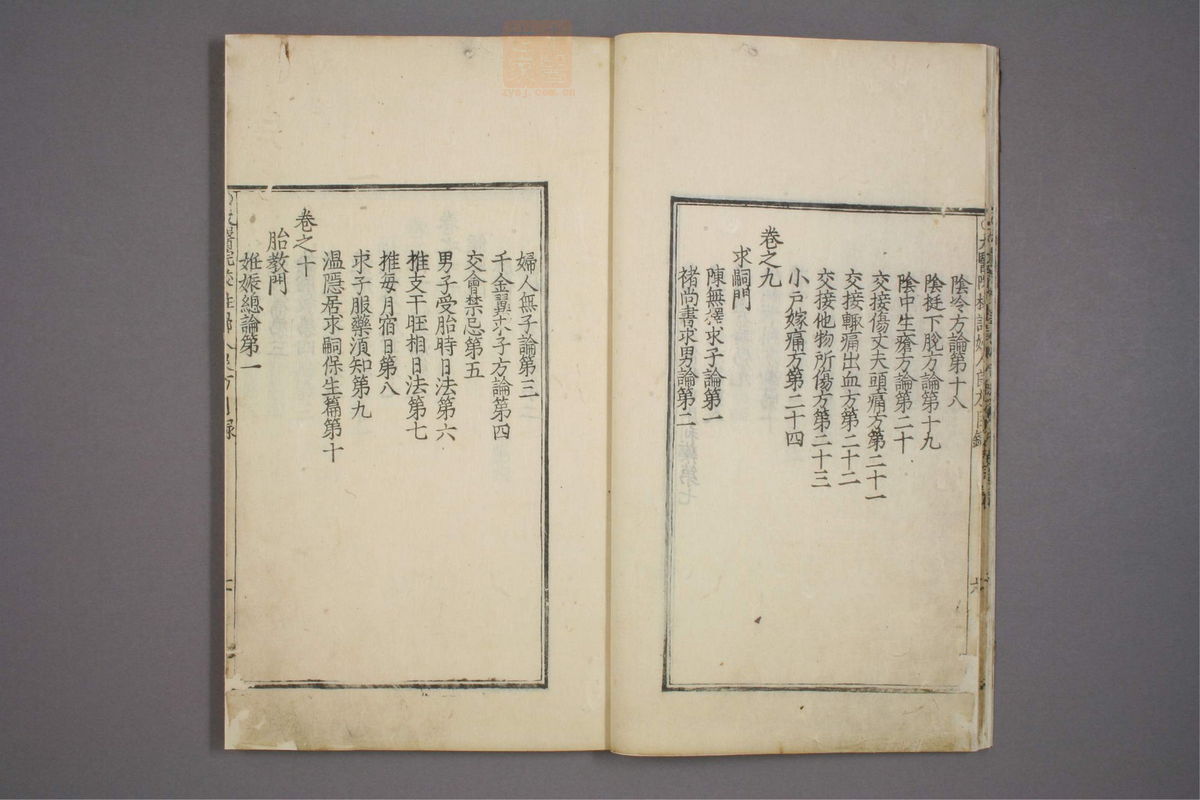 陰冷方論第十八
陰挺下脫方論第十九
陰中生瘡方論第二十
交接傷丈夫頭痛方第二十一
交接輙痛出血方第二十二
交接他物所傷方第二十三
小戶嫁痛方第二十四
卷之九
求嗣門
陳無擇求子論第一
褚尚書求男論第二
婦人無子論第三
千金翼求子方論第四
交會禁忌第五
男子受胎時日法第六
推支干旺相日法第七
推每月宿日第八
求子服藥須知第九
溫隱居求嗣保生篇第十
卷之十
胎教門
姙娠總論第一
zysj.com.cn